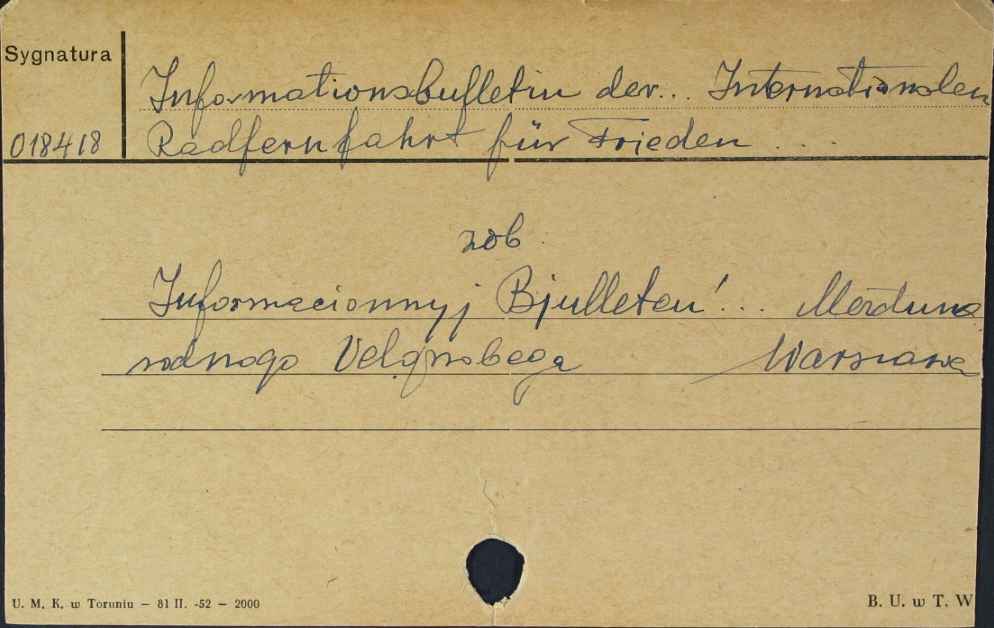 Sygnatura
Informationsbulletin der... Internationalen
018418 Radfernfahrt für Frieden ...
zob.
Informacionnyj Bjulleten'... Meżduna
rodnogo Velogonobega Warszawa
U. M. K. w Toruniu — 81 II. -52 — 2000
B. U. w T. W